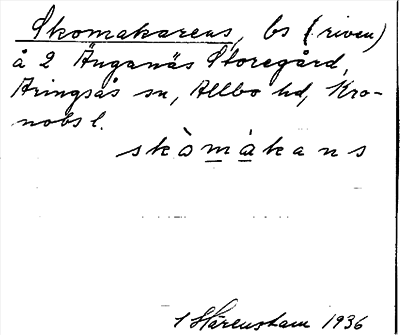 Skomakarens, bs (riven)
å 2 Änganäs Storegård,
Aringsås sn, Allbo hd, Kro-
nobs l.
skòmákans
Härenstam 1936